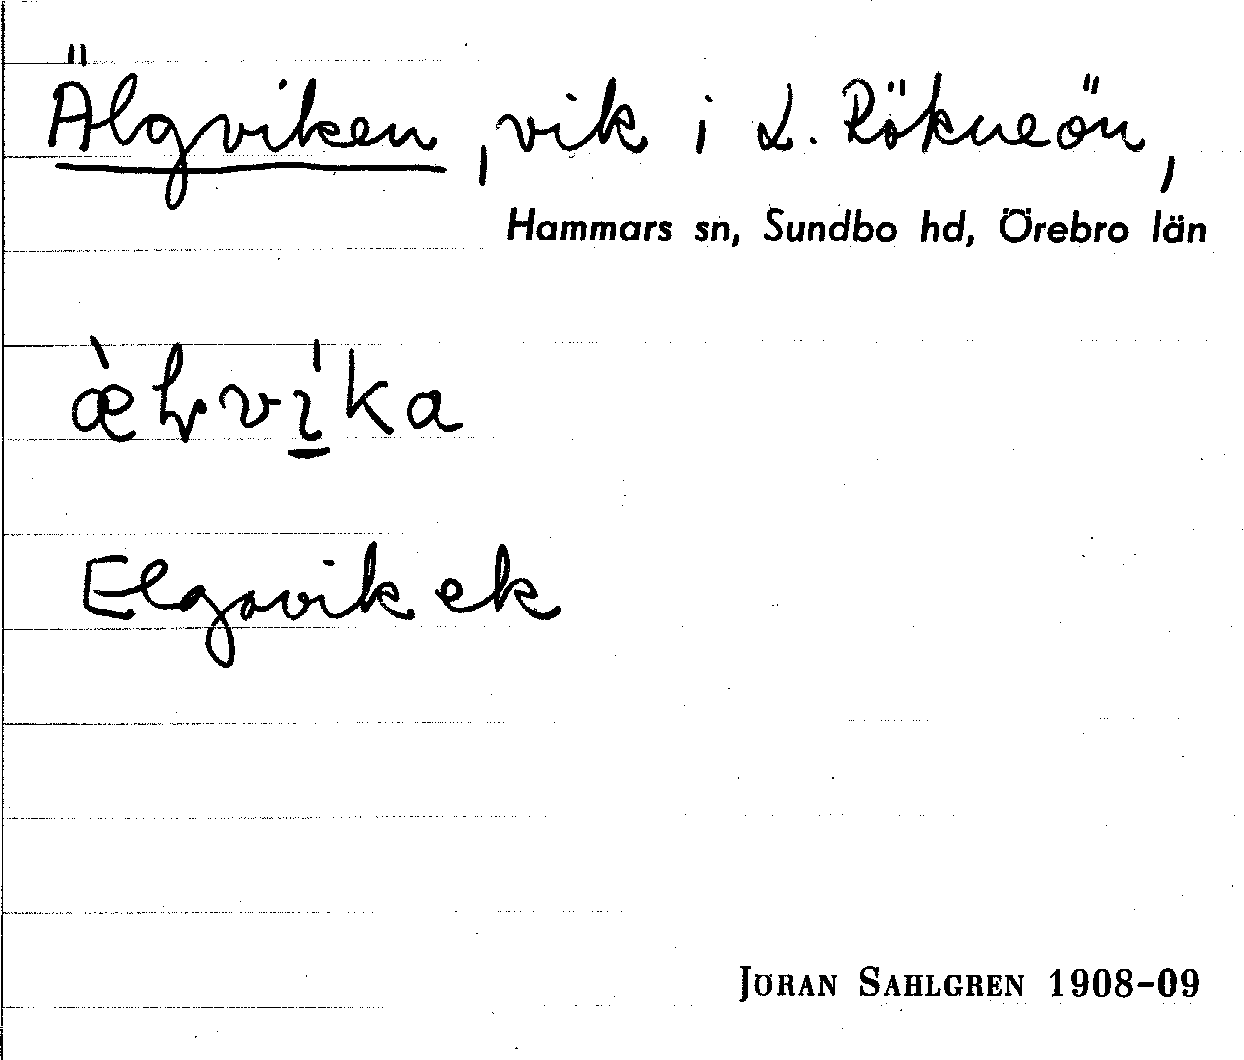 Älgviken, vik i L. Rökneön,
Hammars sn, Sundbo hd, Örebro län
æ̀lvi̱̍ka
Elgsvik ek
JÖRAN SAHLGREN 1908-09